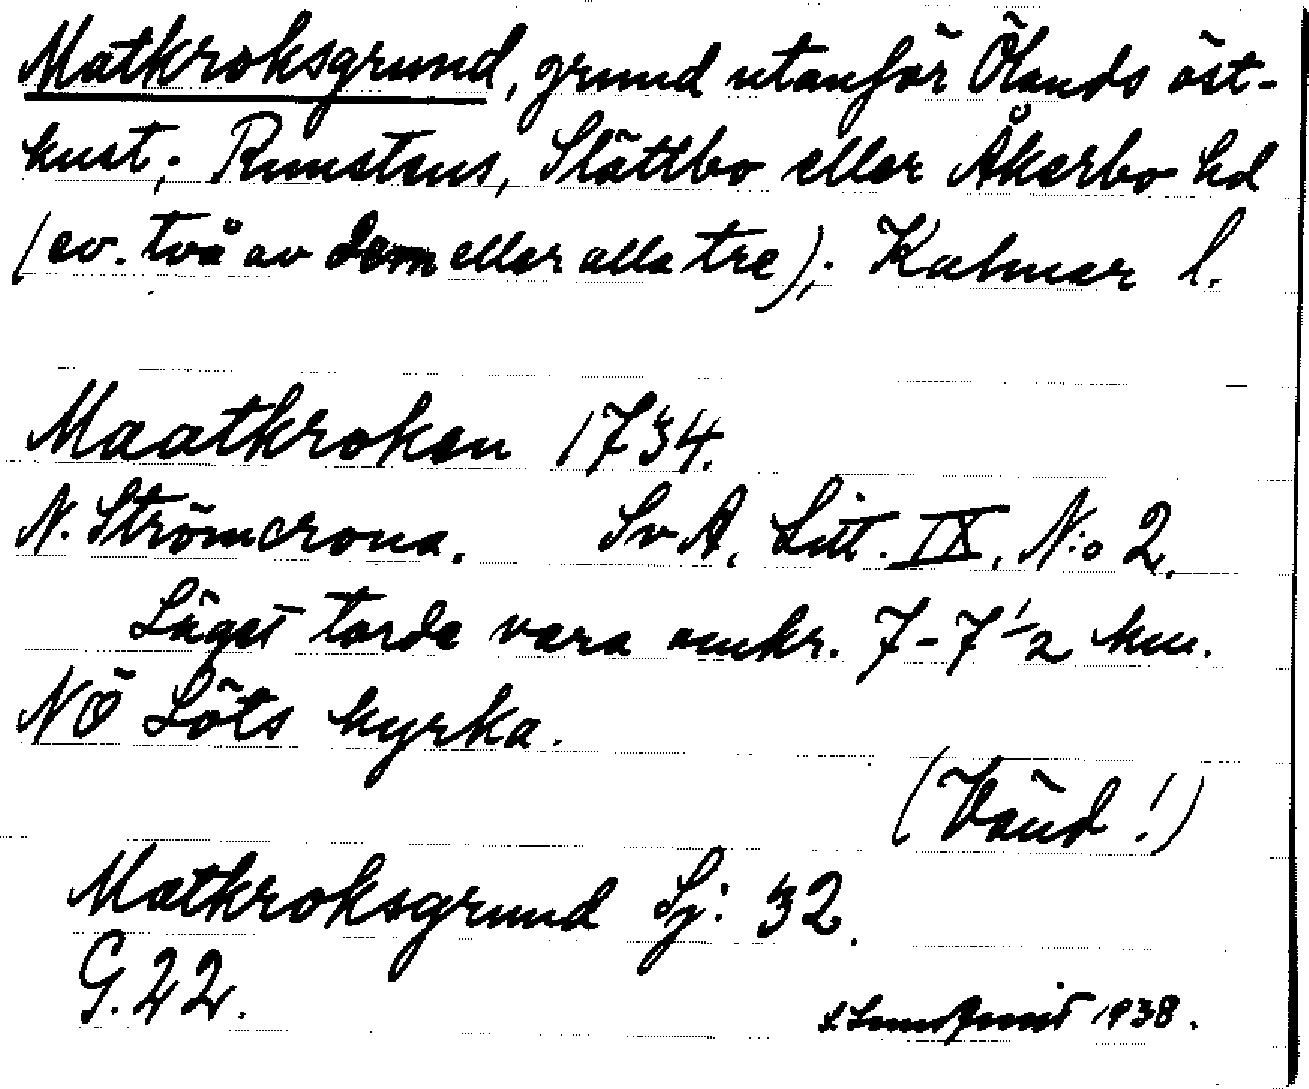 Matkroksgrund, grund utanför Ölands öst-
kust; Runstens, Slättbo eller Åkerbo hd
(ev. två av dem eller alla tre); Kalmar l.
Maatkroken 1734.
N. Strömcrona. Sv A, Litt. IX, N:o 2.
Läget torde vara omkr. 7-7 1/2 km.
NÖ Löts kyrka.
(Vänd!)
Matkroksgrund Sj: 32.
G. 22.
1938.